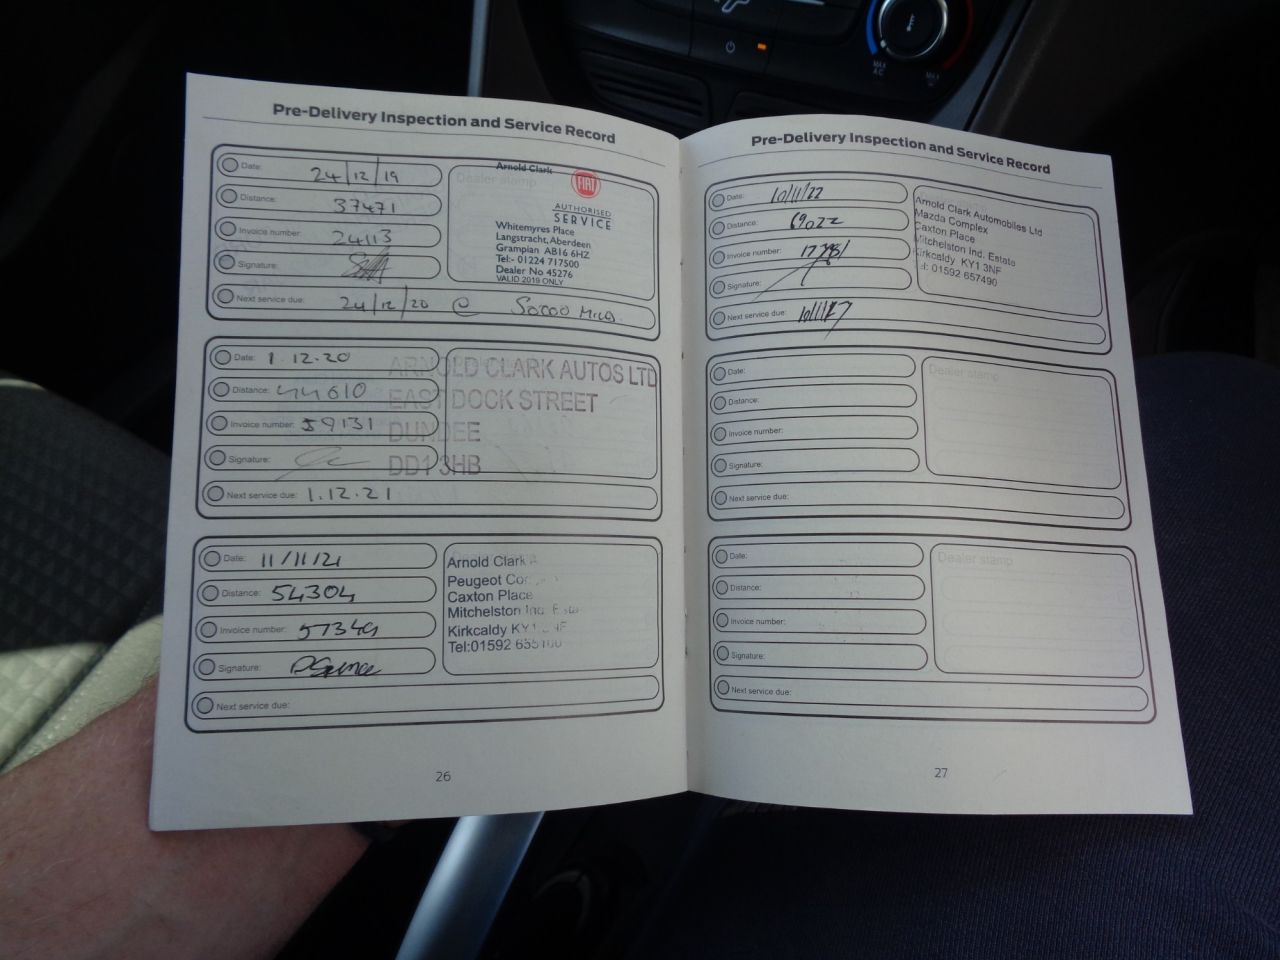 Pre-Delivery Inspection and Service Record
Date: 24/12/19
Distance: 37471
Invoice number: 24113
Signature:
Next service due: 24/12/20 @ 50000 Miles
Dealer stamp
Arnold Clark
FIAT
AUTHORISED
SERVICE
Whitemyres Place
Langstracht, Aberdeen
Grampian AB16 6HZ
Tel:- 01224 717500
Dealer No 45276
VALID 2019 ONLY
Date: 1.12.20
Distance: 44610
Invoice number: 59131
Signature:
Next service due: 1.12.21
ARNOLD CLARK AUTOS LTD
EAST DOCK STREET
DUNDEE
DD1 3HB
Date: 11/11/21
Distance: 54304
Invoice number: 57349
Signature:
Next service due:
Dealer stamp
Arnold Clark
Peugeot
Caxton Place
Mitchelston Ind.
Kirkcaldy
Tel:01592
26
Pre-Delivery Inspection and Service Record
Date: 10/11/22
Distance: 69022
Invoice number:
Signature:
Next service due:
Arnold Clark Automobiles Ltd
Mazda Complex
Caxton Place
Mitchelston Ind. Estate
Kirkcaldy KY1 3NF
Tel: 01592 657490
Date:
Distance:
Invoice number:
Signature:
Next service due:
Dealer stamp
Date:
Distance:
Invoice number:
Signature:
Next service due:
Dealer stamp
27
MAX
A/C
MAX